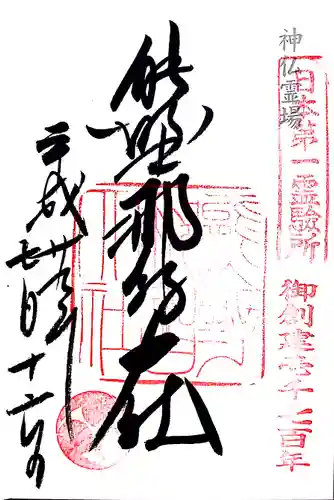 神仏霊場
日本第一霊験所
御創建壱千七百年
熊野那智大社
平成廿九年
七月十六日